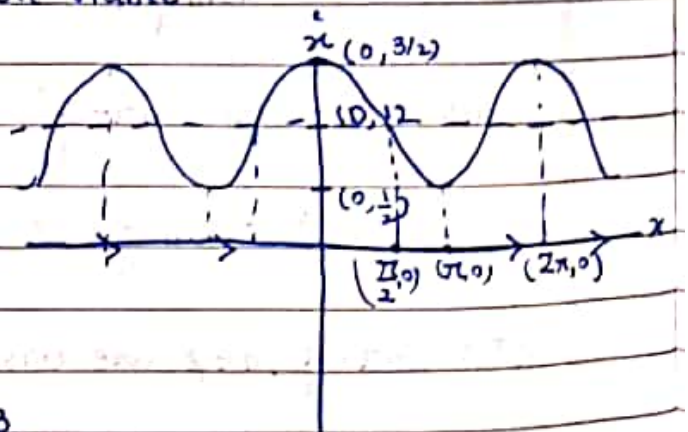 ẋ (0, 3/2)
(0, 1)
(0, 1/2)
x
(π/2, 0) (π, 0) (2π, 0)